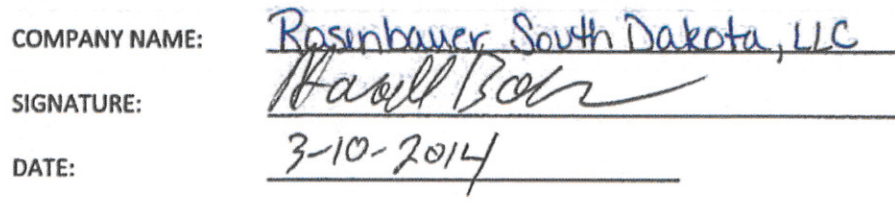 COMPANY NAME: Rosenbauer South Dakota, LLC
SIGNATURE: Harold Bo
DATE: 3-10-2014